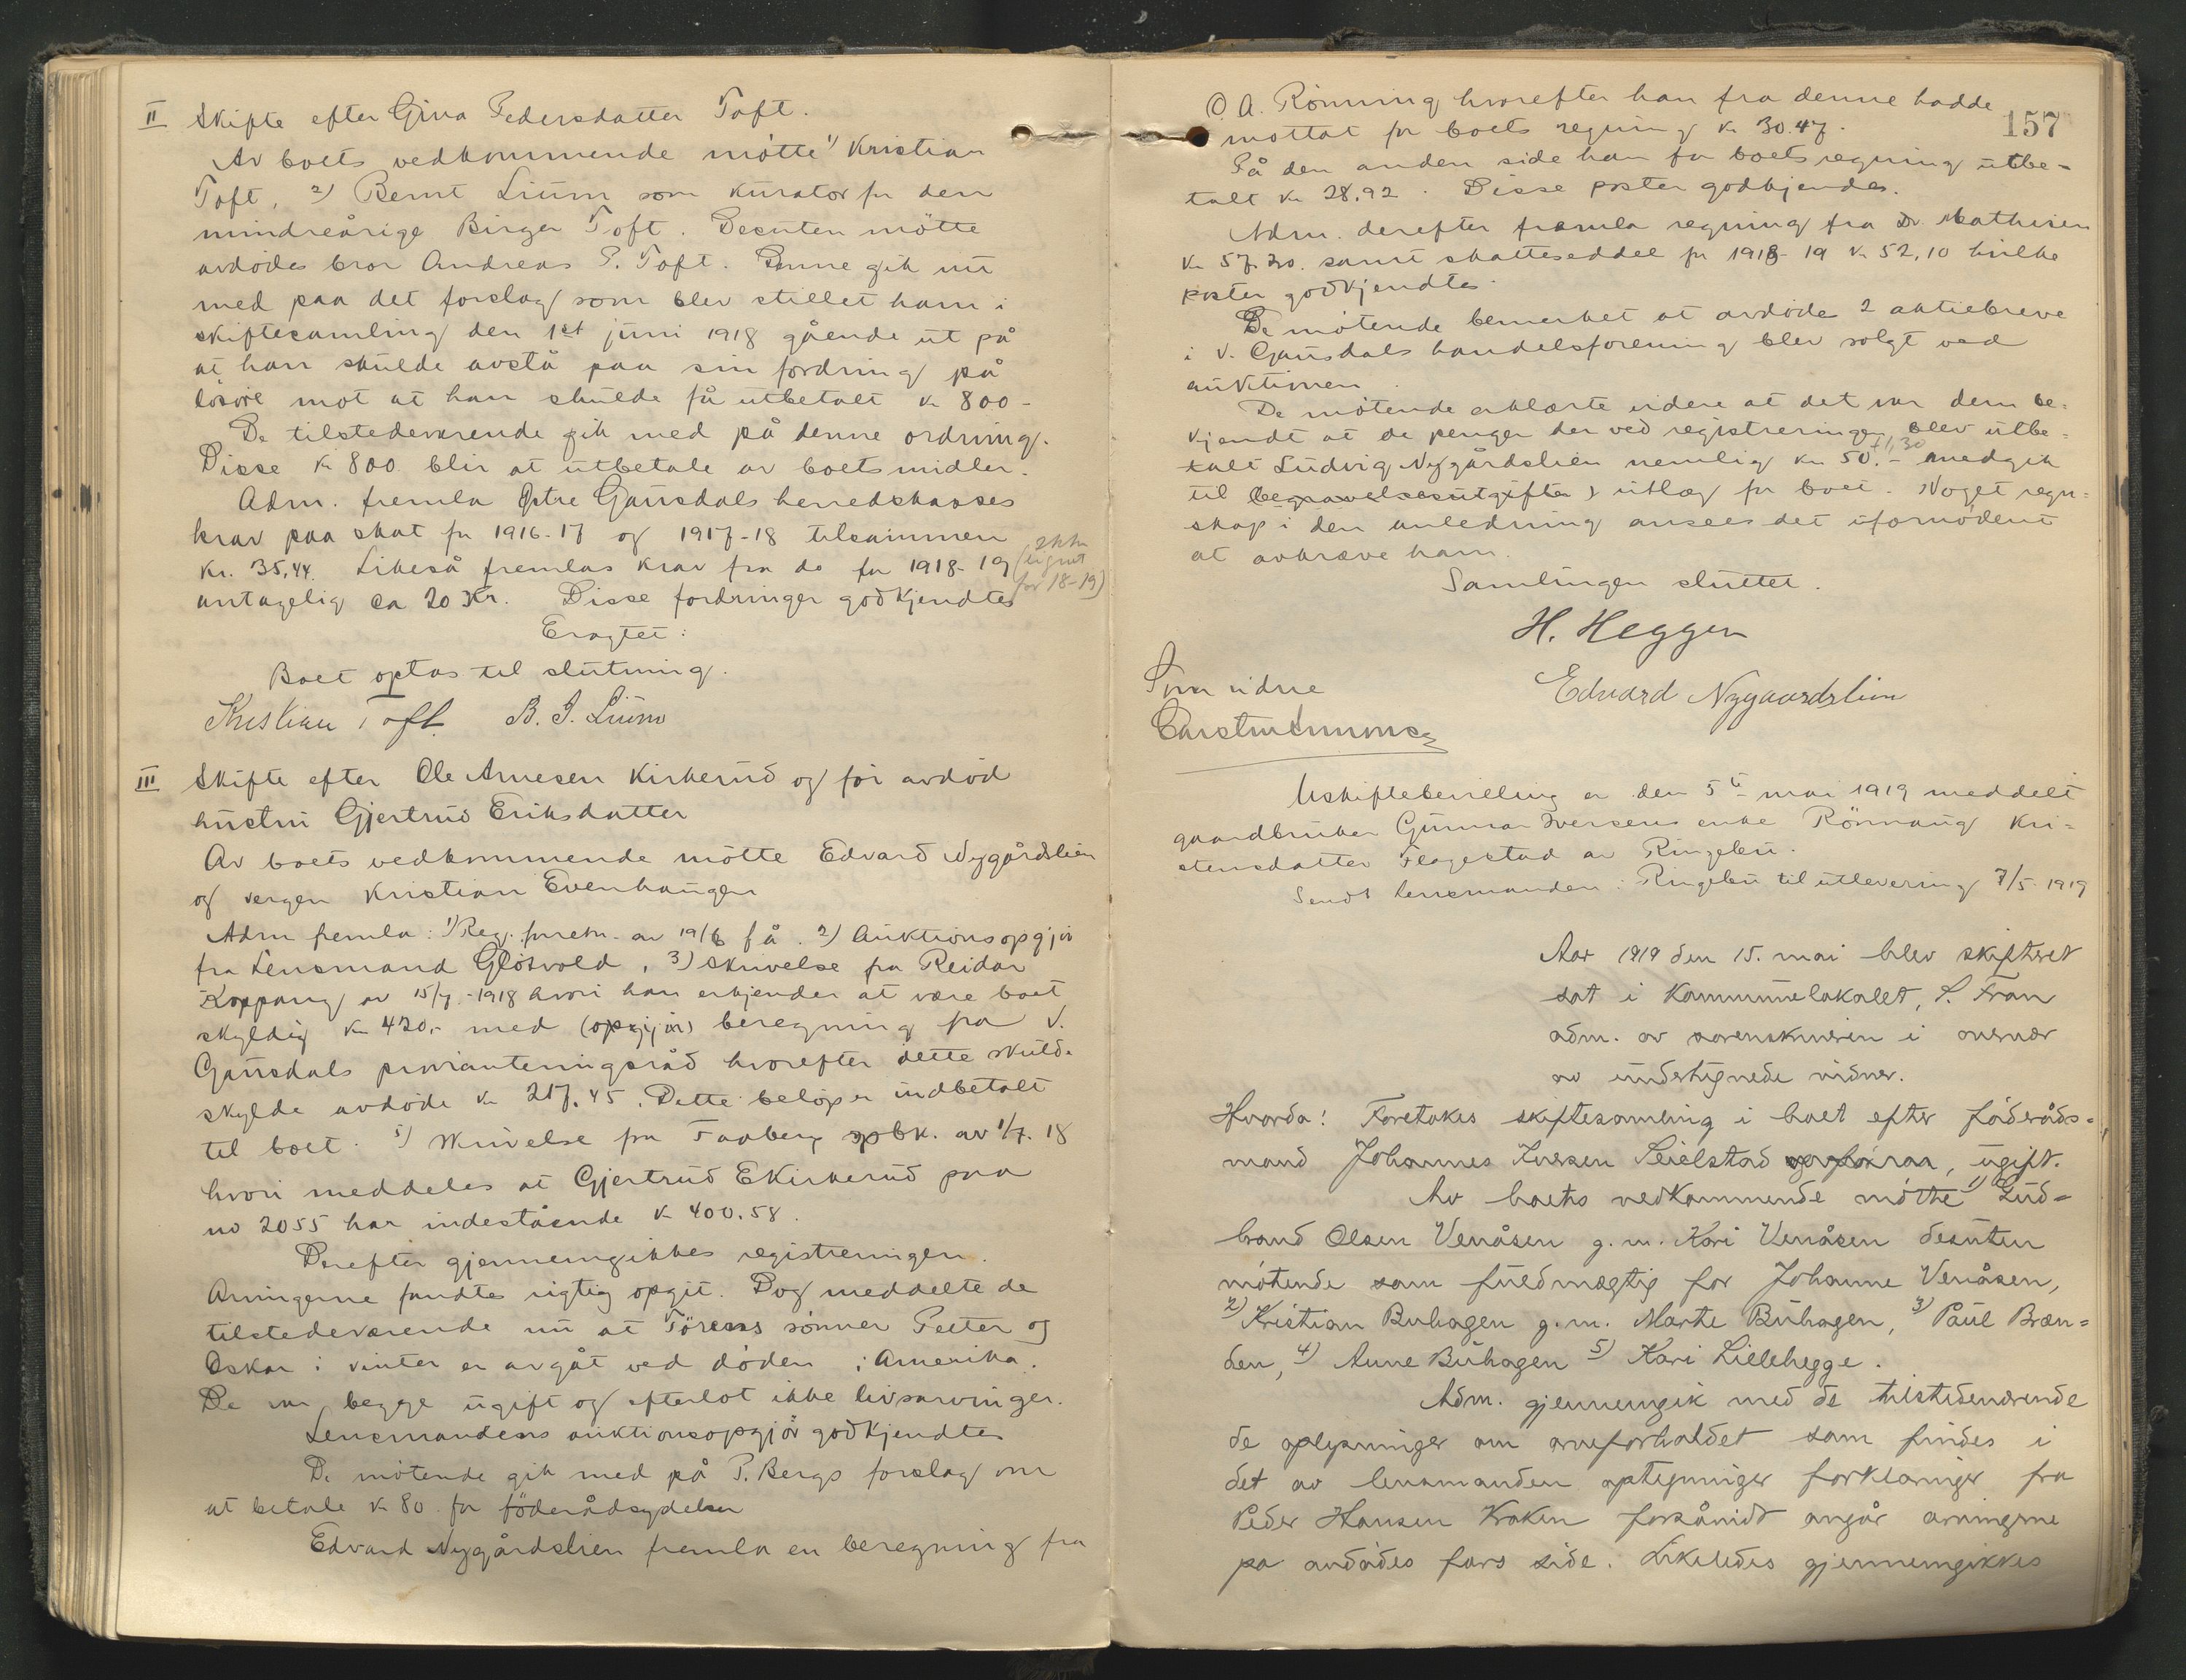 II Skifte efter Gina Pedersdatter Toft.
Av boets vedkommende mötte 1) Kristian
Toft, 2) Bernt Lium som kurator for den
mindreårige Birger Toft. Desuten mötte
avdödes bror Andreas P. Toft. Denne gik nu
med paa det forslag som blev stillet ham i
skiftesamling den 1st juni 1918 gående ut på
at han skulde avstå paa sin fordring på
lösöre mot at han skulde få utbetalt kr 800-
De tilstedeværende gik med på denne ordning.
Disse kr 800 blir at utbetale av boets midler.
Adm. fremla Östre Gausdals herredskasses
krav paa skat for 1916-17 og 1917-18 tilsammen
Kr. 35,44. Likeså fremlas krav fra do for 1918-19 (ikke lignet for 18-19)
antagelig ca 20 Kr. Disse fordringer godkjendtes
Eragtet:
Boet optas til slutning.
Kristian Toft B. J. Lium
III Skifte efter Ole Arnesen Kirkerud og før avdöd
hustru Gjertrud Eriksdatter
Av boets vedkommende mötte Edvard Nygårdslien
og vergen Kristian Evenhaugen
Adm fremla: 1) Reg. forretn. av 19/6 f å. 2) Auktionsopgjör
fra Lensmand Glösvold, 3) Skrivelse fra Reidar
Koppang av 15/7-1918 hvori han erkjender at være boet
skyldig kr 420,- med (opgjör) beregning fra V.
Gausdals provianteringsråd hvorefter dette skulde
skylde avdöde kr 217.45. Dette belöp er indbetalt
til boet. 5) Skrivelse fra Faaberg spbk. av 1/7. 18
hvori meddeles at Gjertrud E Kirkerud paa
no 2055 har indestående kr 400.58.
Derefter gjennemgikkes registreringen.
Arvingerne fandtes rigtig opgit. Dog meddelte de
tilstedeværende nu at sönner Peeter og
Oskar i vinter er avgåt ved döden i Amerika.
De var begge ugift og efterlot ikke livsarvinger.
Lensmandens auktionsopgjör godkjendtes
De mötende gik med på P. Bergs forslag om
at betale kr 80 for föderådsydelser
Edvard Nygårdslien fremla en beregning fra
157
O. A. Rönning hvorefter han fra denne hadde
mottat for boets regning kr 30.47.
På den anden side har han for boets regning utbe-
talt kr 28.92. Disse poster godkjendes.
Adm. derefter fremla regning fra Dr Mathisen
kr 57.20. samt skatteseddel for 1918-19 kr 52,10 hvilke
poster godkjendtes.
De mötende bemerket at avdödes 2 aktiebreve
i V. Gausdals handelsforening blev solgt ved
auktionen.
De mötende erklærte videre at det var dem be-
kjendt at de penger der ved registreringen blev utbe-
talt Ludvig Nygårdslien nemlig kr 50.- +1,30 medgik
til begravelsesutgifter utlæg for boet. Noget regn-
skap i den anledning ansees det ufornödent
at avkræve ham.
Samlingen sluttet.
H. Heggen
Edvard Nygaardslien
Som vidne
Uskiftebevilling er den 5te mai 1919 meddelt
gaardbruker Gunnar Iversens enke Rönnaug Kri-
stensdatter Flagestad av Ringebu.
Sendt lensmanden i Ringebu til utlevering 7/5-1919
Aar 1919 den 15. mai blev skifteret
sat i Kommunelokalet, S. Fron
adm. av sorenskriveren i overvær
av undertegnede vidner.
Hvorda: Foretokes skiftesamling i boet efter föderåds-
mand Johannes Iversen Seielstad, ugift.
Av boets vedkommende mötte 1) Gud-
brand Olsen Venåsen g. m. Kari Venåsen desuten
mötende som fuldmægtig for Johanne Venåsen,
2) Kristian Buhagen g. m. Marte Buhagen, 3) Paul Bræn-
den, 4) Anne Buhagen 5) Kari Lillehegge.
Adm. gjennemgik med de tilstedeværende
de oplysninger om arveforholdet som findes i
det av lensmanden optegninger forklaringer fra
Peder Hansen Kroken forsåvidt angår arvingerne
pa avdödes fars side. Likeledes gjennemgikkes